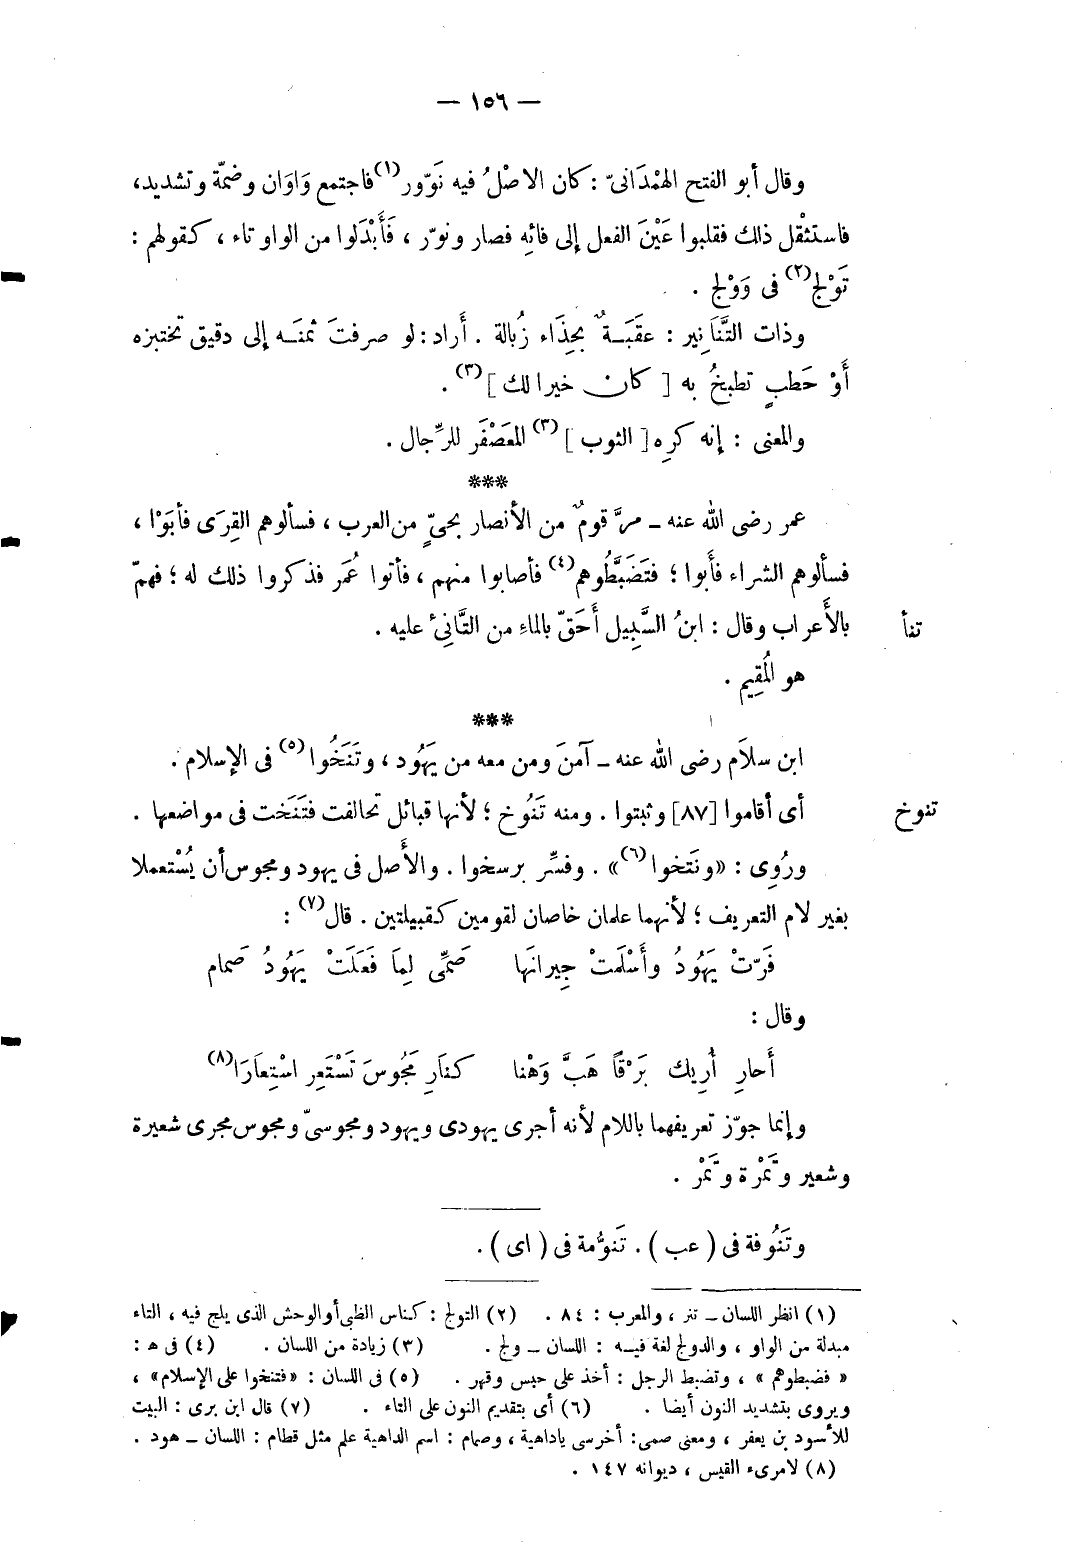 — ١٥٦ —
وقال أبو الفتح الهمْدَانىّ : كان الاصْلُ فيه نَوّور(١) فاجتمع وَاوَان وضمّة وتشديد،
فاستثْقل ذلك فقلبوا عَيْنَ الفعل إلى فائِه فصار ونوّر ، فَأَبْدَلوا من الواو تاء ، كقولهم :
تَوْلج(٢) فى وَوْلج .
وذات التَّنَانِير : عقَبَةٌ بِحِذَاء زُبالة . أراد : لو صرفتَ ثمنَه إلى دقيق تختبزه
أَوْ حَطبٍ تطبخُ به [ كان خيرا لك ](٣) .
والمعنى : إنه كرِه [ الثوب ](٣) المعَصْفَر للرِّجال .
***
عمر رضى الله عنه – مرَّ قومٌ من الأنصار بحىّ من العرب ، فسألوهم القِرَى فأبَوْا ،
فسألوهم الشراء فأَبوا ؛ فتَضَبَّطُوهم(٤) فأصابوا منهم ، فأتوا عُمَر فذكروا ذلك له ؛ فهمّ
تنأ
بالأَعراب وقال : ابنُ السَّبِيل أَحَقّ بالماءِ من التَّانِئ عليه .
هو المُقِيم .
***
ابن سلاَم رضى الله عنه – آمنَ ومن معه من يَهُود ، وتَنَخُوا(٥) فى الإسلام .
تنوخ
أى أقاموا [٨٧] وثبتوا . ومنه تَنُوخ ؛ لأنها قبائل تحالفت فتَنَخت فى مواضعها .
ورُوِى : «ونَتخوا(٦)» . وفسِّر برسخوا . والأَصل فى يهود ومجوس أن يُسْتعملا
بغير لام التعريف ؛ لأنهما علمان خاصان لقومين كقبيلتين . قال(٧) :
فَرّتْ يَهُودُ وأَسْلَمتْ جِيرانَها صَمِّى لِمَا فَعَلَتْ يَهُودُ صَمام
وقال :
أَحارِ أُرِيك بَرْقًا هَبَّ وَهْنا كنَارِ مَجُوسَ تَسْتَعِر اسْتِعَارَا(٨)
وإنما جوّز تعريفهما باللام لأنه أجرى يهودى ويهود ومجوسىّ ومجوس مجرى شعيرة
وشعير وتَمْرة وتَمْر .
وتَنُوفة فى ( عب ) . تَنوُّمة فى ( اى ) .
(١) انظر اللسان – تنر ، والمعرب : ٨٤ . (٢) التولج : كناس الظبى أو الوحش الذى يلج فيه ، التاء
مبدلة من الواو ، والدولج لغة فيه : اللسان – ولج . (٣) زيادة من اللسان . (٤) فى ه :
« فضبطوهم » ، وتضبط الرجل : أخذ على حبس وقهر . (٥) فى اللسان : «فتنخوا على الإسلام» ،
ويروى بتشديد النون أيضا . (٦) أى بتقديم النون على التاء . (٧) قال ابن برى : البيت
للأسود بن يعفر ، ومعنى صمى : أخرسى ياداهية ، وصمام : اسم الداهية علم مثل قطام : اللسان – هود .
(٨) لامرىء القيس ، ديوانه ١٤٧ .